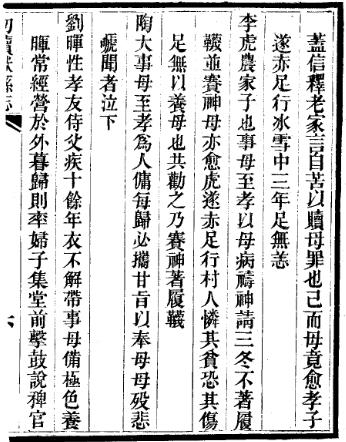 蓋信釋老家言自苦以贖母罪也已而母竟愈孝子
遂赤足行冰雪中三年足無恙
李虎農家子也事母至孝以母病禱神請三冬不著履
韈並賽神母亦愈虎遂赤足行村人憐其貧恐其傷
足無以養母也共勸之乃賽神著履韈
陶大事母至孝為人傭每歸必攜甘旨以奉母母歿悲
號聞者泣下
劉暉性孝友侍父疾十餘年衣不解帶事母備極色養
暉常經營於外暮歸則率婦子集堂前擊鼓說稗官